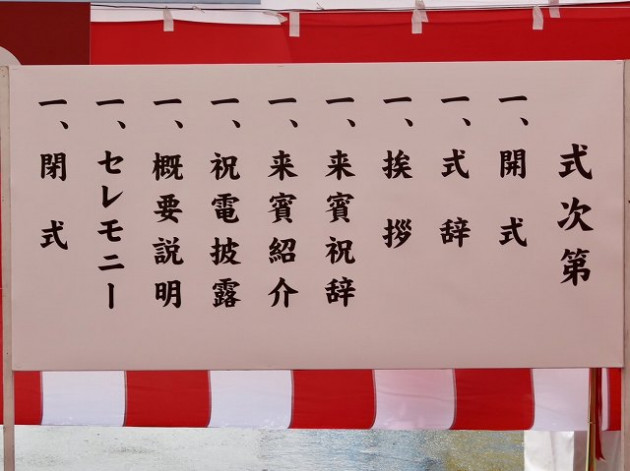 式次第
一、開式
一、式辞
一、挨拶
一、来賓祝辞
一、来賓紹介
一、祝電披露
一、概要説明
一、セレモニー
一、閉式